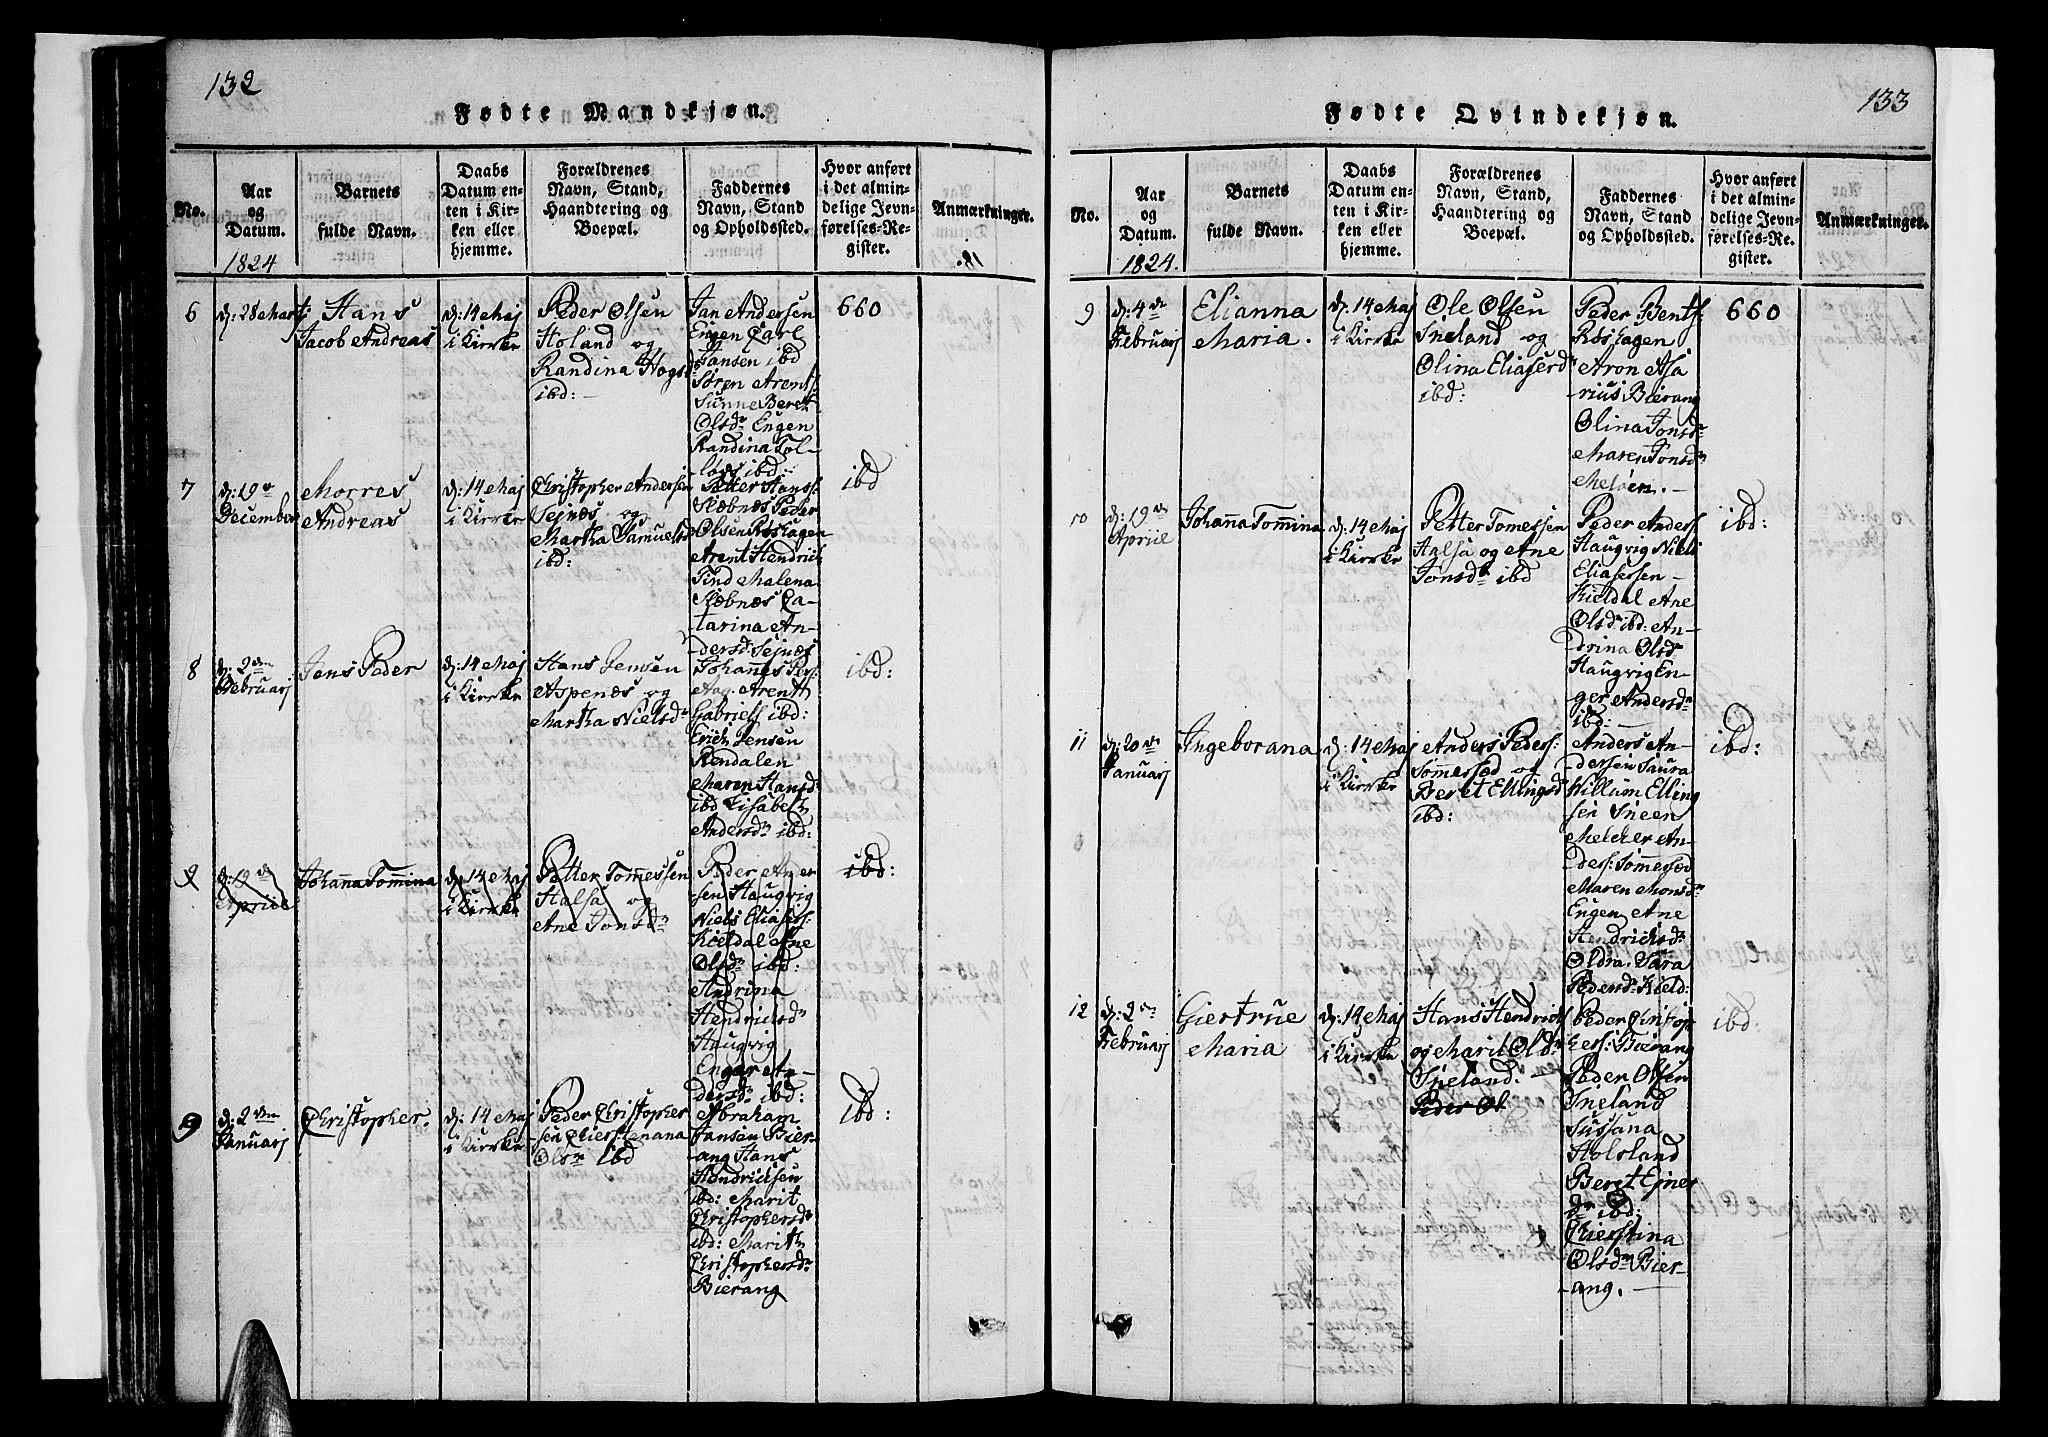 132
Fødte Mandkjøn.
No.
Aar
og
Datum.
1824
Barnets
fulde Navn.
Daabs
Datum en-
ten i Kir-
ken eller
hjemme.
Forældrenes
Navn, Stand,
Haandtering og
Boepæl.
Faddernes
Navn, Stand
og Opholdssted.
Hvor anført
i det almin-
delige Jevn-
førelses-Re-
gister.
Anmærkninger.
6
d: 28 Marti
Hans
Jacob Andreas
d: 14 Maj
i Kirke
Peder Olsen
Holand og
Randina Hogsd
ibd: —
Jan Andersen
Engen Carl
Jansen ibd
Søren Arents
Sunne Beret
Olsdr Engen
Randina Tol-
løvs ibd:
660
7
d: 19de
December
Morres
Andreas
d: 14 Maj
i Kirke
Christopher Andersen
Sejnæs og
Martha Samuelsd
ibd:
Petter Hans:
Slæbnæs Peder
Olsen Røshagen
Arent Hendrich
Find Malena
Slæbnæs Ca-
tarina An-
dersd: Sejnæs
ibd
8
d: 2den
Februarj
Jens Peder
d: 14 Maj
i Kirke
Hans Jensen
Aspenæs og
Martha Nielsdr
Johannes Pers:
Aag. Arent
Gabriels ibd:
Erich Jensen
Rendalen
Maren Hansd:
ibd Lisabeth
Andersdr ibd:
ibd:
9
d: 19de
Aprill
Johanna Tommina
d: 14 Maj
i Kirke
Petter Tomessen
Halsa og
Ane Jonsdr
Peder Ander
sen Haugvig
Niels Eliass:
Kieldal Ane
Olsdr ibd:
Andrina
Hendrichsdr
Haugvig
Engar An-
dersdr ibd:
ibd:
9
d: 2den
Januarj
Christopher.
d: 14 Maj
i Kirke
Peder Christopher
sen Chierstenana
Olsn ibd
Abraham
Jansen Bier-
ang Hans
Hendrichsen
ibd: Marit
Christophersdr
ibd: Marith
Christophersdr
Bierang
ibd:
133
Fødte Qvindekjøn.
No.
Aar
og
Datum.
1824.
Barnets
fulde Navn.
Daabs
Datum en-
ten i Kir-
ken eller
hjemme.
Forældrenes
Navn, Stand,
Haandtering og
Boepæl.
Faddernes
Navn, Stand
og Opholdssted.
Hvor anført
i det almin-
delige Jevn-
førelses-Re-
gister.
Anmærkninger.
9
d: 4de
Februarj
Elianna
Maria.
d: 14 Maj
i Kirke
Ole Olsen
Sneland og
Olina Eliaserdr
ibd:
Peder Bents:
Røshagen
Aron Asa
rius Bierang
Olina Jonsdr
Maren Jonsdr
Meløen. —
660
10
d: 19de
Aprill
Johanna Tommina
d: 14 Maj
i Kirke
Petter Tomessen
Halsa og Ane
Jonsdr ibd
Peder Anders
Haugvig Niels
Eliasersen —
Kieldal Ane
Olsdr ibd: An-
drina Olsd
Haugvig En-
ger Andersdr
ibd: —
ibd:
11
d: 20de
Januarj
Ingeborana
d: 14 Maj
i Kirke
Anders Peders:
Sommersæd og
Beret Ellingsd
ibd:
Anders An-
dersen Saura
Willum Elling
sen Sneen
Melcher An-
ders: Sommersæd
Maren Monsdr
Engen Ane
Hendrichsdr
Oldra. Sara
Pedersdr Kield:
ibd:
12
d: 2den
Februarj
Giertrue
Maria
d: 14 Maj
i Kirke
Hans Hendrich
og Marit Olsdr
Sneland. —
Peder Ol
Peder Christop
hers: Bierang
Peder Olsen
Sneland
Sussana
Holsland
Beret Ejner
dr ibd:
Chierstina
Olsdr Bier-
ang. —
ibd: